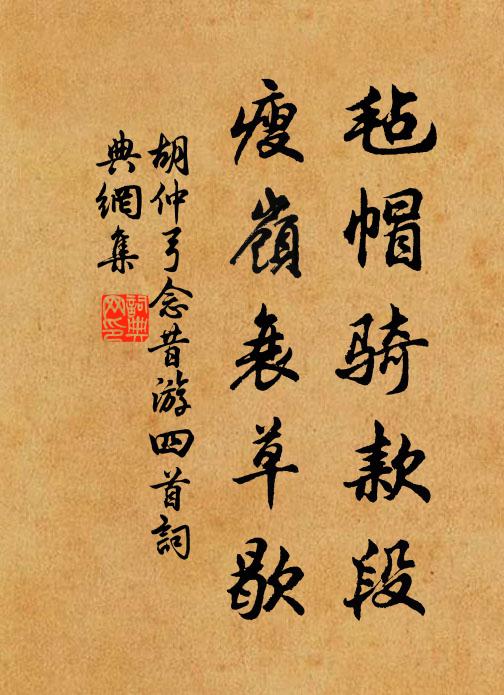 毡帽骑款段
瘦嶺衰草歇
胡仲弓念昔游四首詞
典網集
詞典网印